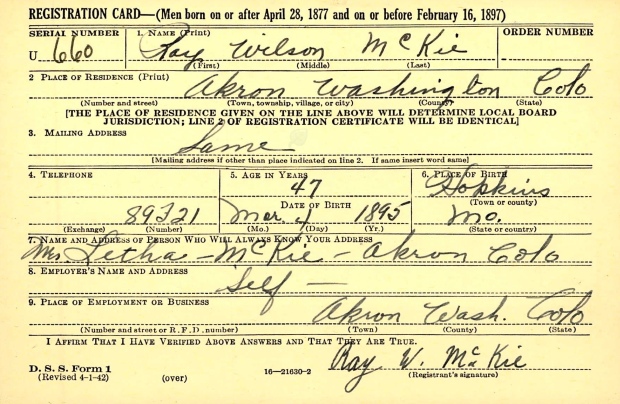 REGISTRATION CARD—(Men born on or after April 28, 1877 and on or before February 16, 1897)
SERIAL NUMBER 1. NAME (Print) ORDER NUMBER
U 660 Ray Wilson McKie
(First) (Middle) (Last)
2 PLACE OF RESIDENCE (Print)
Akron Washington Colo
(Number and street) (Town, township, village, or city) (County) (State)
[THE PLACE OF RESIDENCE GIVEN ON THE LINE ABOVE WILL DETERMINE LOCAL BOARD
JURISDICTION; LINE 2 OF REGISTRATION CERTIFICATE WILL BE IDENTICAL]
3. MAILING ADDRESS
Same
[Mailing address if other than place indicated on line 2. If same insert word same]
4. TELEPHONE 5. AGE IN YEARS 6. PLACE OF BIRTH
47 Hopkins
DATE OF BIRTH (Town or county)
Mar 1895 Mo.
(Exchange) (Number) (Mo.) (Day) (Yr.) (State or country)
7. NAME AND ADDRESS OF PERSON WHO WILL ALWAYS KNOW YOUR ADDRESS
Mrs Letha - McKie - Akron Colo
8. EMPLOYER'S NAME AND ADDRESS
Self -
9. PLACE OF EMPLOYMENT OR BUSINESS
Akron Wash. Colo
(Number and street or R. F. D. number) (Town) (County) (State)
I AFFIRM THAT I HAVE VERIFIED ABOVE ANSWERS AND THAT THEY ARE TRUE.
Ray W. McKie
D. S. S. Form 1
(Revised 4-1-42) (over) 16—21630-2 (Registrant's signature)